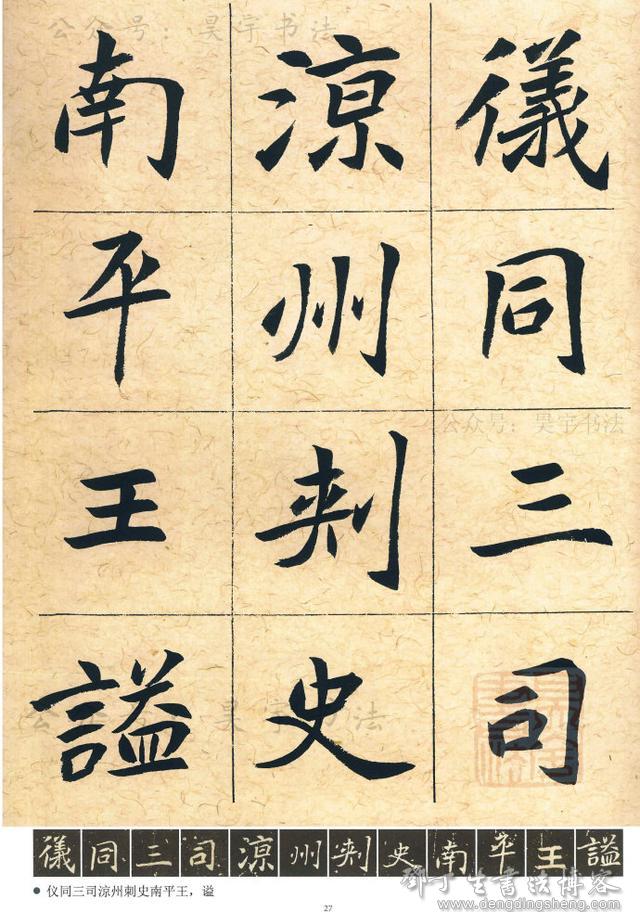 公众号：昊宇书法
儀同三司
涼州刾史
南平王謚
公众号：昊宇书法
公众号：昊宇书法
儀同三司涼州刾史南平王謚
● 仪同三司涼州刺史南平王，谥
27
邓丁生书法博客
www.dengdingsheng.com